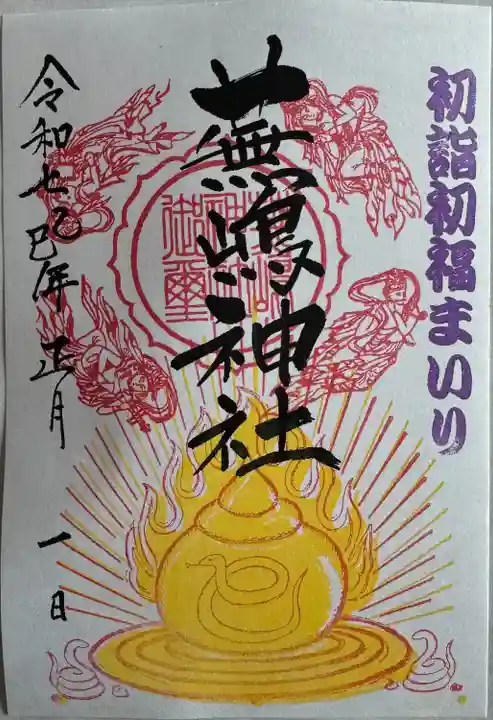 初詣初福まいり
蕪嶋神社
令和七乙巳年 正月 一日
御璽